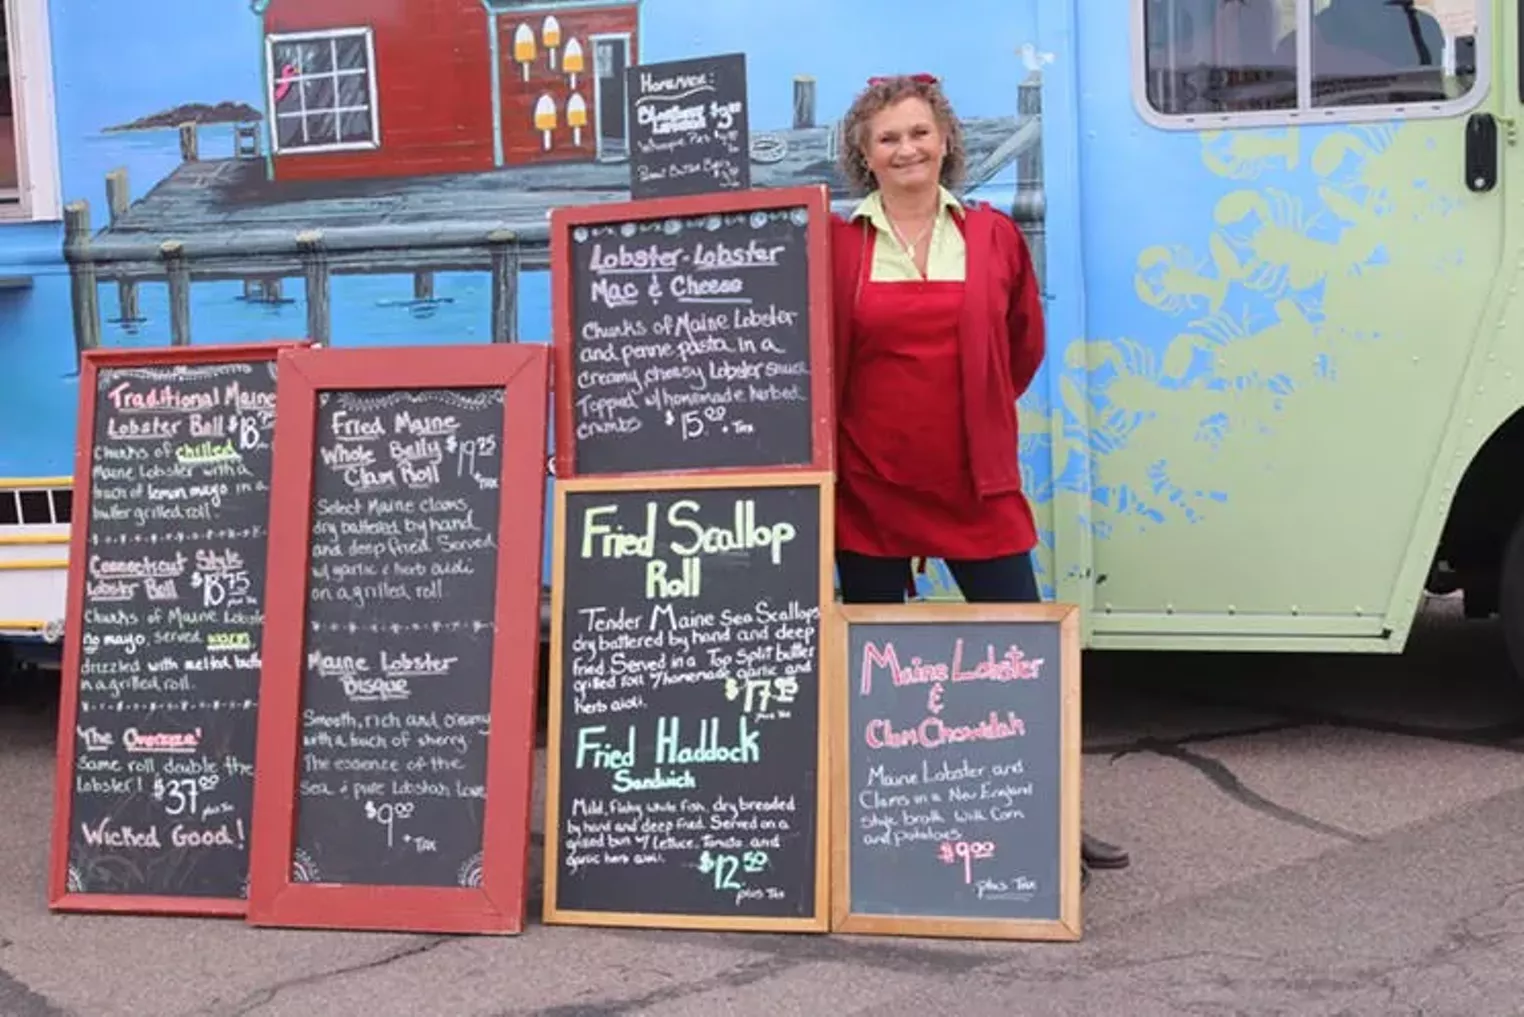 HOMEMADE:
$3.00
Whoopie Pies
Traditional Maine
Lobster Roll $18.75
Chunks of chilled
Maine Lobster with a
touch of lemon mayo in a
butter grilled roll.
Connecticut Style
Lobster Roll $18.75
plus tax
Chunks of Maine Lobster
no mayo, served warm
drizzled with melted butter
in a grilled roll.
"The Oversize"
Same roll, double the
Lobster! $37.00
plus tax
Wicked Good!
Fried Maine
Whole Belly $19.75
Clam Roll + Tax
Select Maine clams,
dry battered by hand
and deep fried. Served
w/ garlic & herb aioli
on a grilled roll.
Maine Lobster
Bisque
Smooth, rich and creamy
with a touch of sherry
The essence of the
Sea & pure Lobstah Love
$9.00
+ Tax
Lobster-Lobster
Mac & Cheese
Chunks of Maine Lobster
and penne pasta in a
creamy, cheesy Lobster sauce
Topped w/ homemade herbed
crumbs $15.00 + Tax
Fried Scallop
Roll
Tender Maine Sea Scallops
dry battered by hand and deep
fried. Served in a Top Split butter
grilled roll w/ homemade garlic and
herb aioli. $17.95
plus tax
Fried Haddock
Sandwich
Mild, flaky white fish, dry breaded
by hand and deep fried. Served on a
grilled bun w/ Lettuce, Tomato and
garlic herb aioli. $12.50
plus Tax
Maine Lobster
&
Clam Chowdah
Maine Lobster and
Clams in a New England
style broth with Corn
and potatoes
$9.00
plus Tax